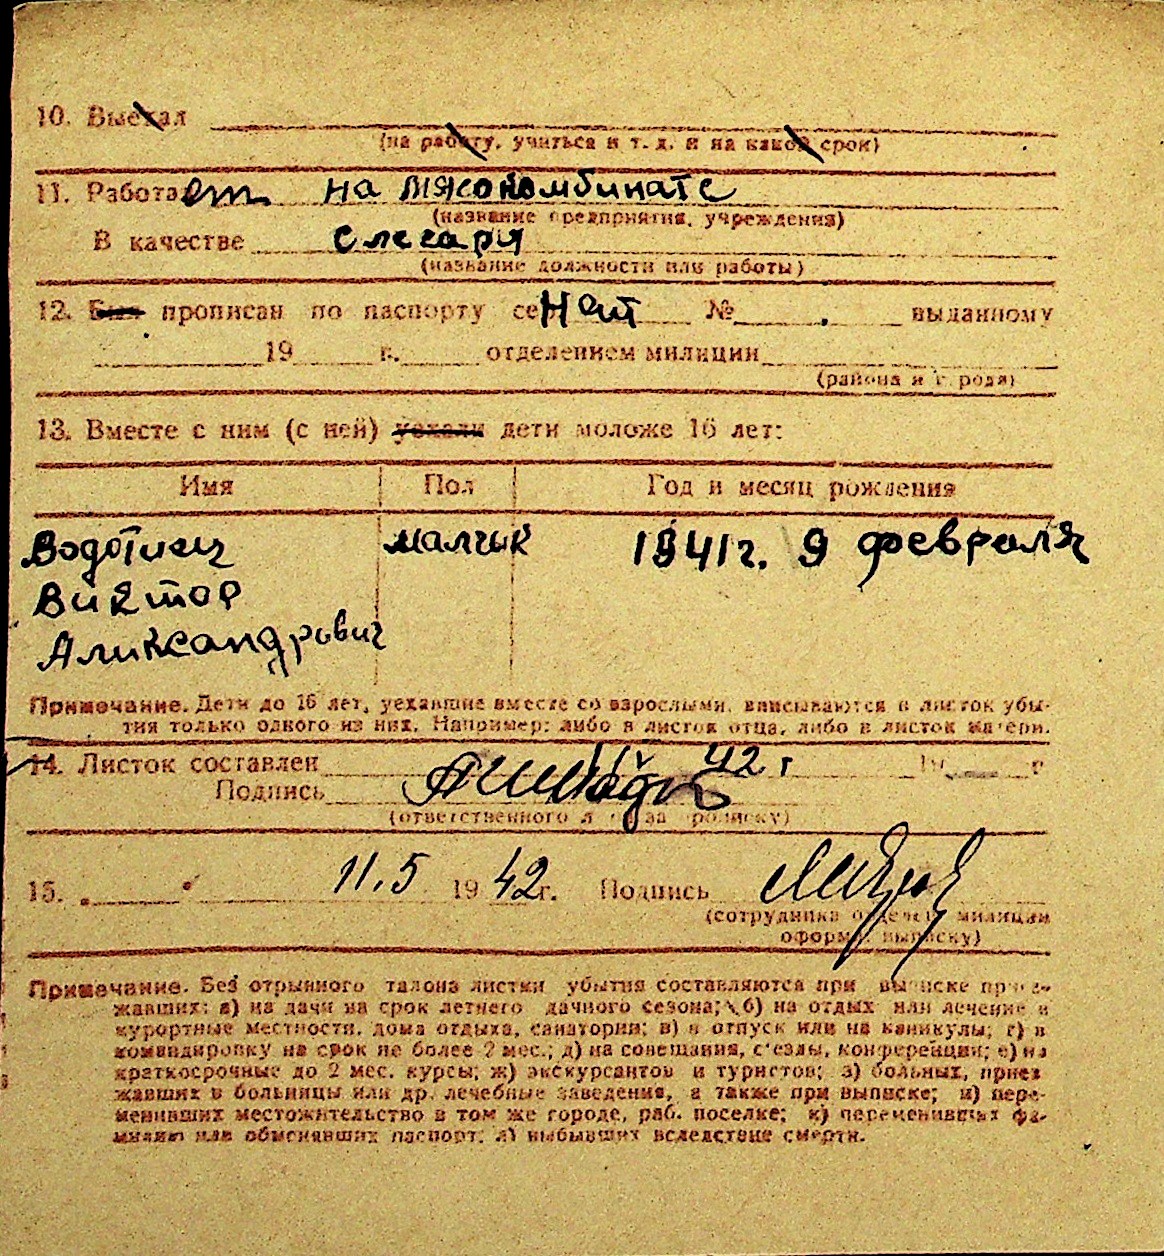 10. Выехал
(на работу, учиться и т. д. и на какой срок)
11. Работает на мясокомбинате
(название предприятия, учреждения)
В качестве слесаря
(название должности или работы)
12. Был прописан по паспорту сер Нет № выданному
19 г. отделением милиции
(района и города)
13. Вместе с ним (с ней) уехали дети моложе 16 лет:
Имя Пол Год и месяц рождения
малчик 1941 г. 9 февраля
Виктор
Аликсандрович
Примечание. Дети до 16 лет, уехавшие вместе со взрослыми, вписываются в листок убы-
тия только одного из них. Например: либо в листок отца, либо в листок матери.
14. Листок составлен 42 г 19 г
Подпись
(ответственного лица за прописку)
15. 11.5 1942 г. Подпись
(сотрудника отделен. милиции
оформ. выписку)
Примечание. Без отрывного талона листки убытия составляются при выписке приез-
жавших: а) на дачи на срок летнего дачного сезона; б) на отдых или лечение в
курортные местности, дома отдыха, санатории; в) в отпуск или на каникулы; г) в
командировку на срок не более 2 мес.; д) на совещания, съезды, конференции; е) на
краткосрочные до 2 мес. курсы; ж) экскурсантов и туристов; з) больных, приез
жавших в больницы или др. лечебные заведения, а также при выписке; и) пере-
менивших местожительство в том же городе, раб. поселке; к) переменивших фа-
милию или обменявших паспорт; л) выбывших вследствие смерти.